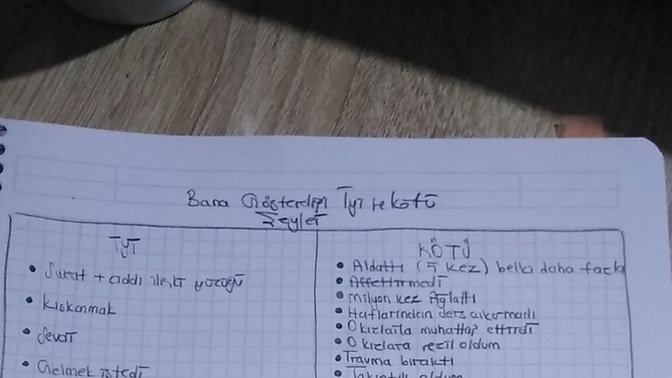 Bana Gösterdiği İyi ve kötü
Şeyler
İYİ
• Surat + ciddi ilişki yüzüğü
• Kıskanmak
• Sevdi
• Gelmek istedi
KÖTÜ
• Aldattı (5 kez) belki daha fazla
• Affettirmedi
• Milyon kez Ağlattı
• Hatlarından ders çıkarmadı
• O kızlarla muhattap ettirdi
• O kızlara rezil oldum
• Travma bıraktı
• Takıntılı oldum